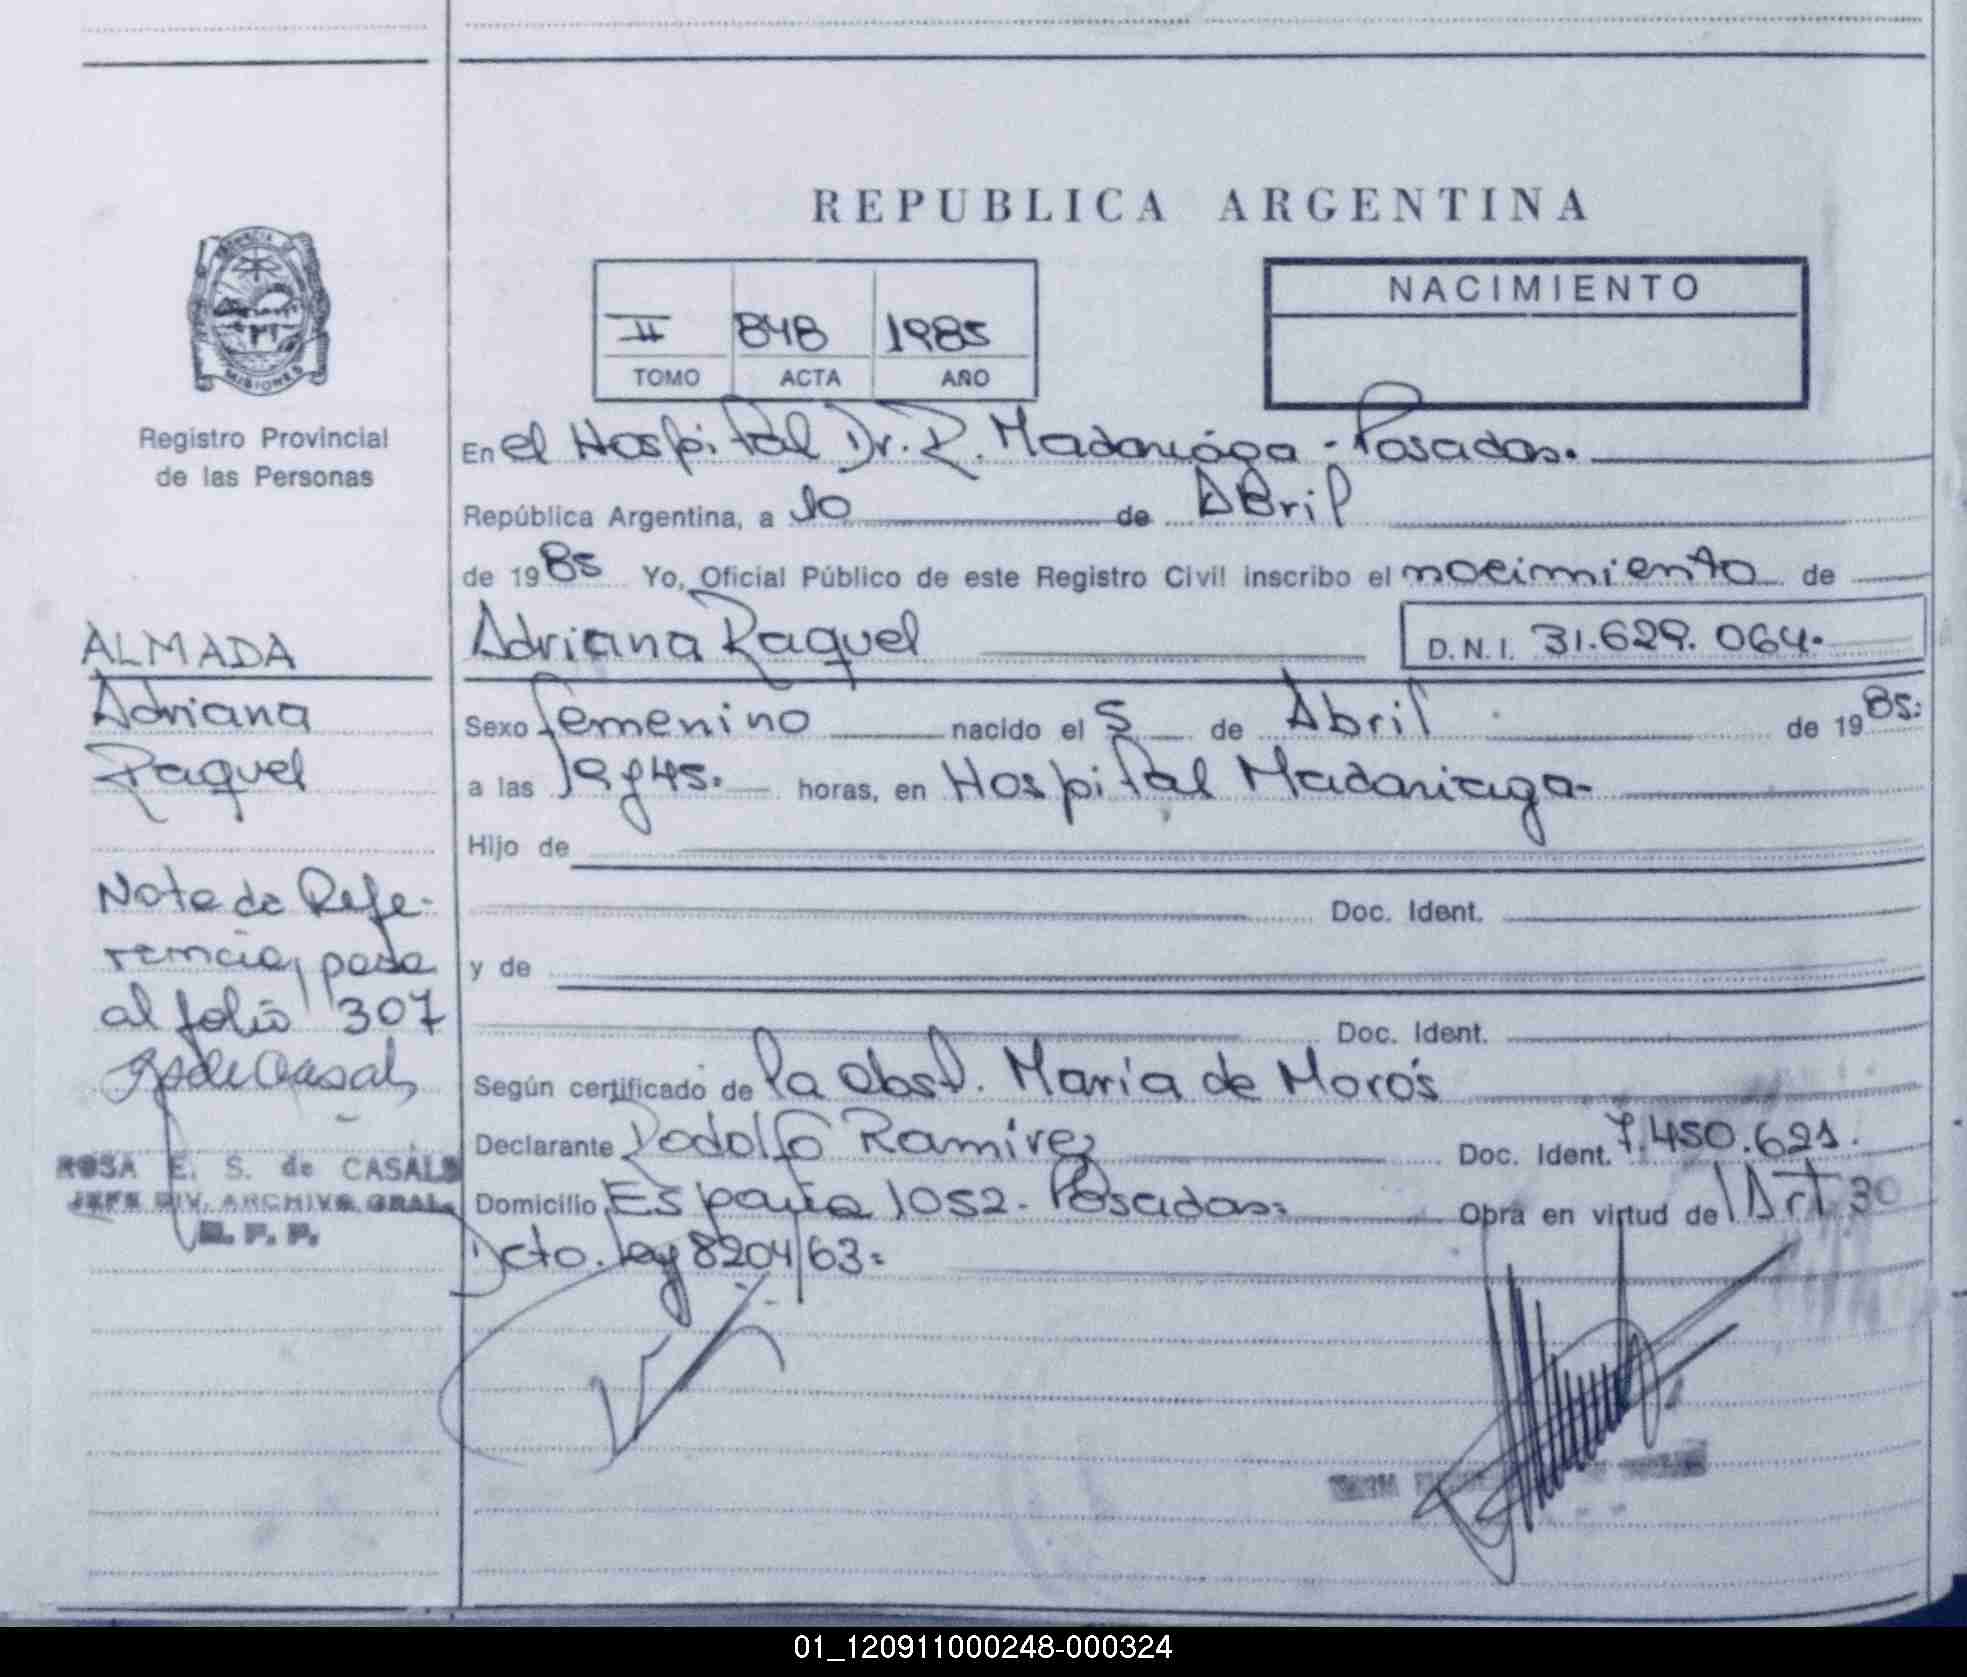 REPUBLICA ARGENTINA
PROVINCIA DE MISIONES
Registro Provincial
de las Personas
II 848 1985
TOMO ACTA AÑO
NACIMIENTO
En el Hospital Dr. R. Madariága - Posadas.
República Argentina, a 10 de ABril
de 1985 Yo, Oficial Público de este Registro Civil inscribo el nacimiento de
Adriana Raquel D.N.I. 31.629.064.
Sexo femenino nacido el 5 de Abril de 1985:
a las 19 y 45. horas, en Hospital Madariaga-
Hijo de
Doc. Ident.
y de
Doc. Ident.
Según certificado de la Obst. María de Morós
Declarante Rodolfo Ramirez Doc. Ident. 7.450.621.
Domicilio España 1052 - Posadas: Obra en virtud de Art 30
Dcto. Ley 8204/63=
ALMADA
Adriana
Raquel
Nota de Refe-
rencia, pasa
al folio 307
ROSA E. S. de CASALS
JEFE DIV. ARCHIVO GRAL.
R. P. P.
01_120911000248-000324